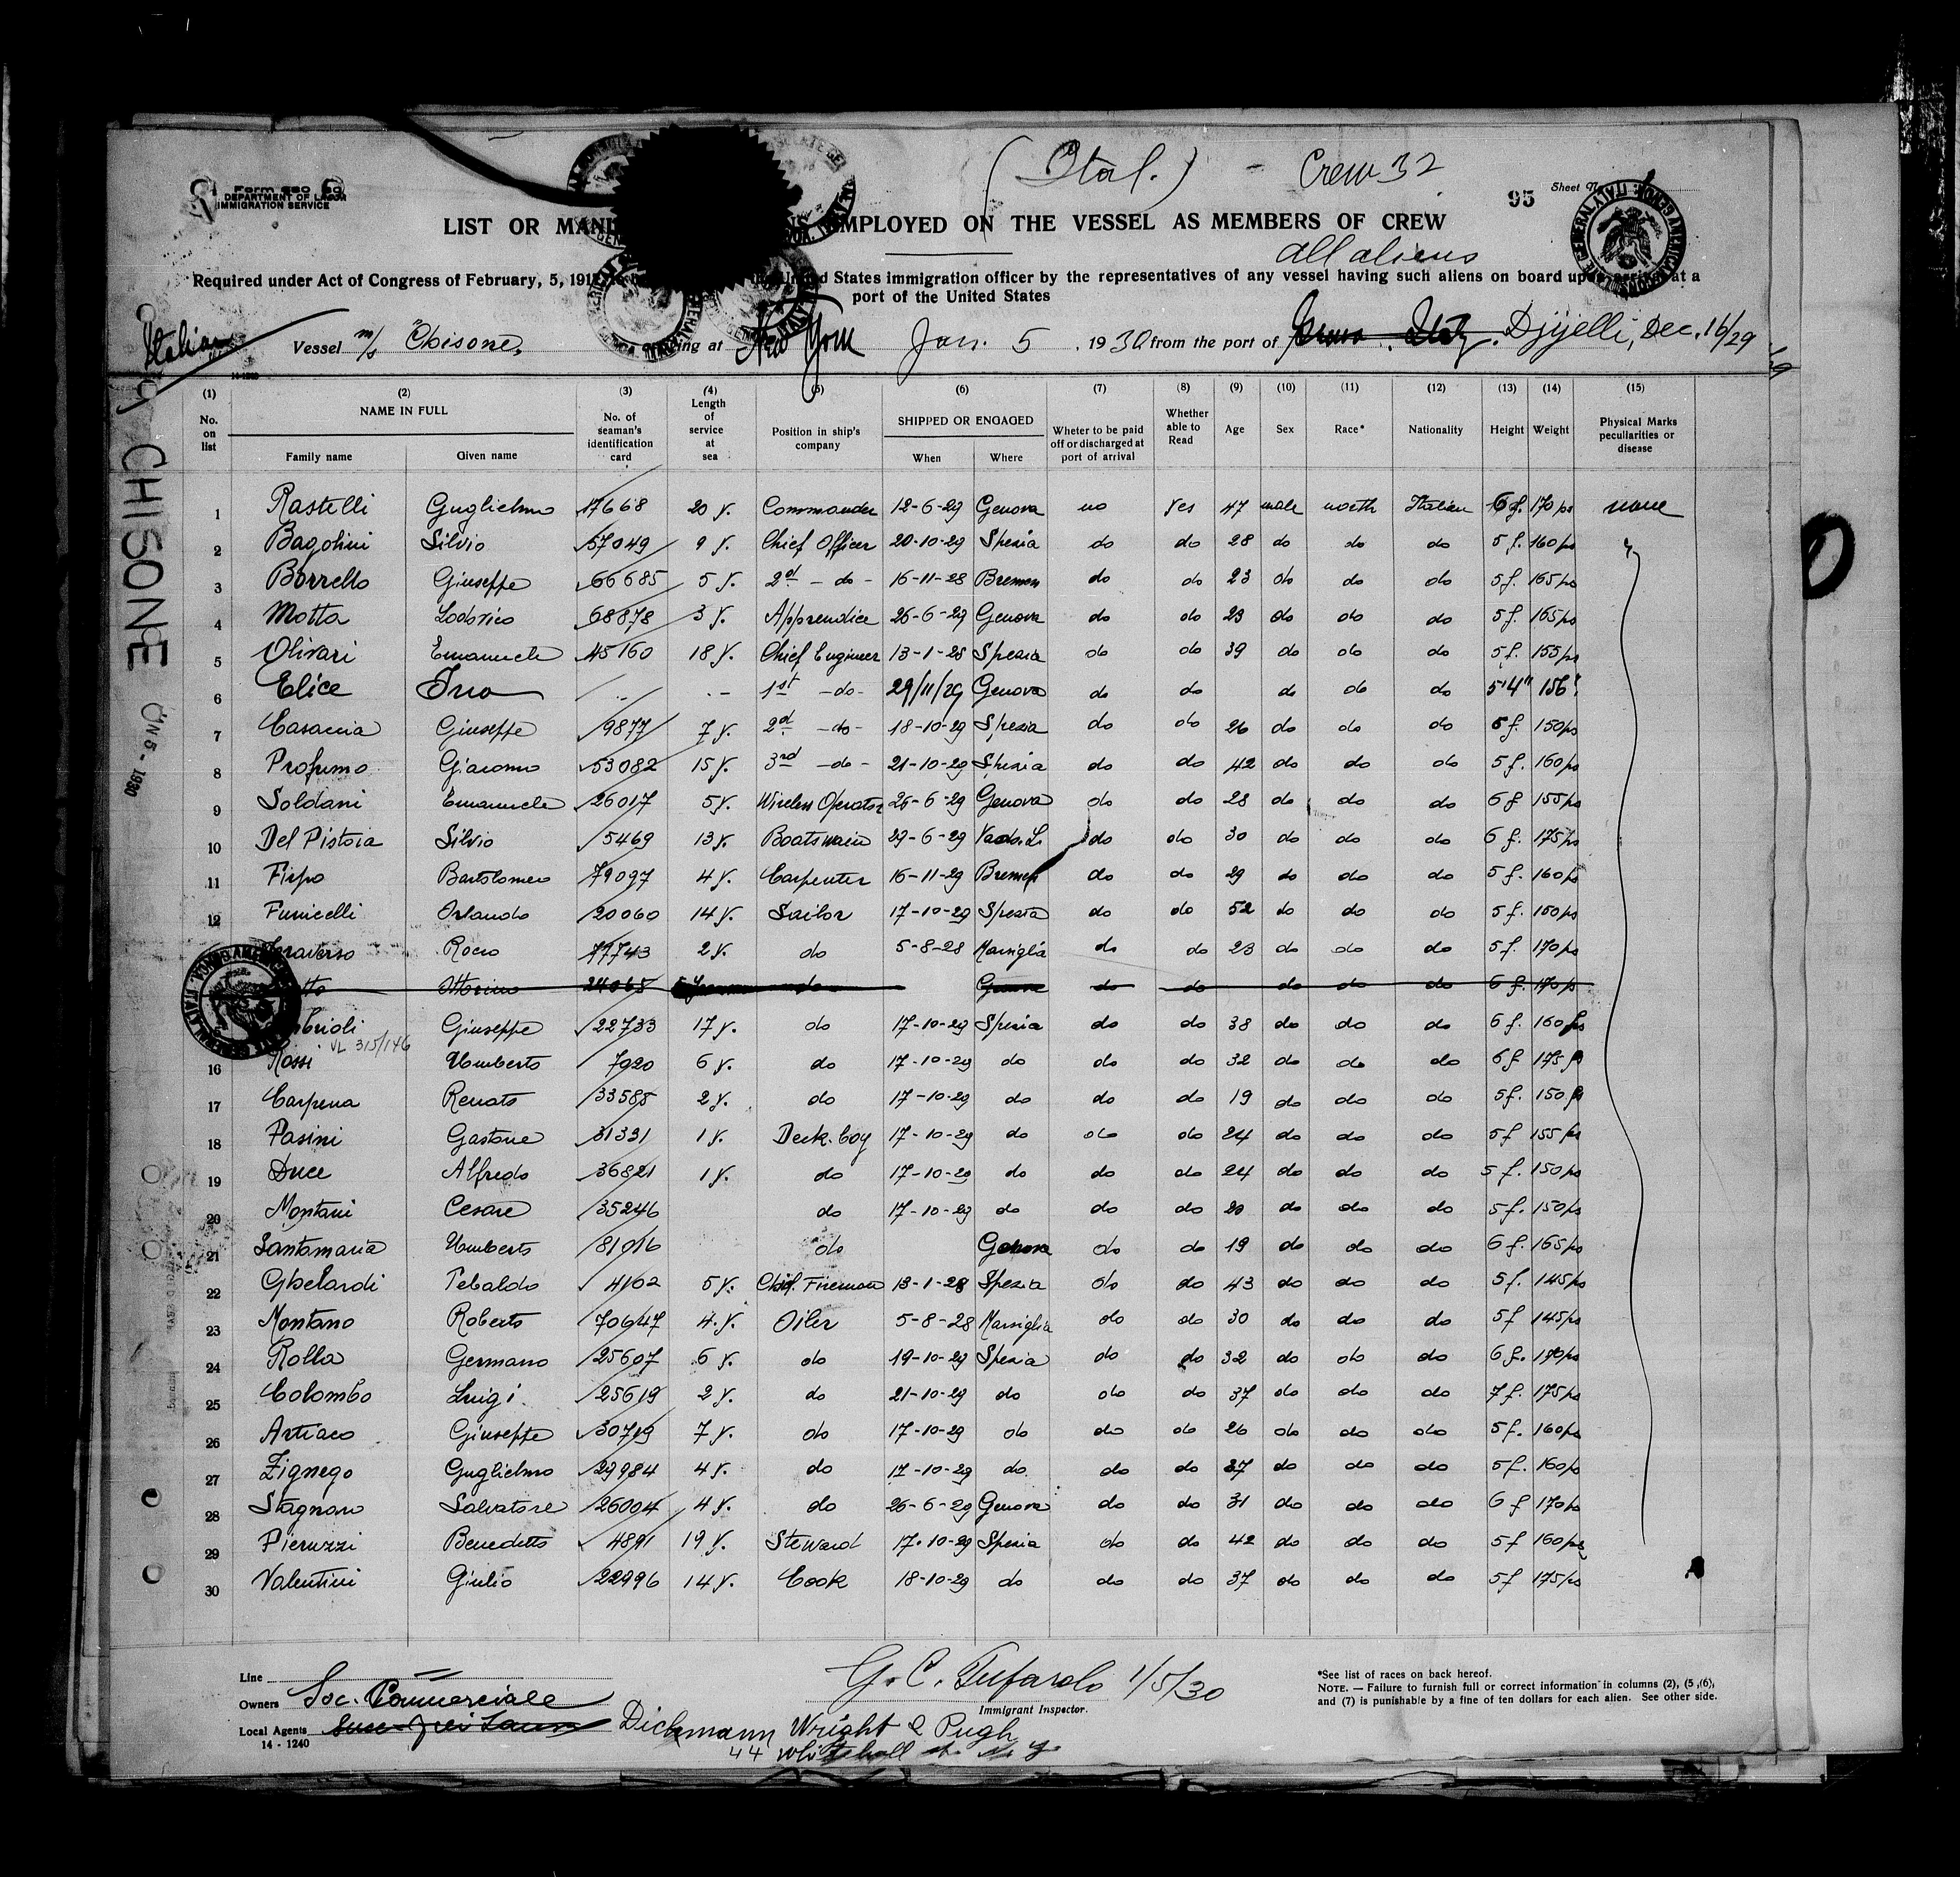 ( Ital. ) - Crew 32
Form 680
DEPARTMENT OF LABOR
IMMIGRATION SERVICE
95 Sheet No. 1
LIST OR EMPLOYED ON THE VESSEL AS MEMBERS OF CREW
All aliens
Required under Act of Congress of February, 5, 191 United States immigration officer by the representatives of any vessel having such aliens on board upon arrival at a
port of the United States
Italian Vessel m/s "Chisone" arriving at New York Jan. 5, 1930 from the port of Genova, Italy. Djijelli, Dec. 16/29
CHISONE
JAN 5 - 1930
(1) (2) (3) (4) (5) (6) (7) (8) (9) (10) (11) (12) (13) (14) (15)
No. on list NAME IN FULL No. of seaman's identification card Length of service at sea Position in ship's company SHIPPED OR ENGAGED Wheter to be paid off or discharged at port of arrival Whether able to Read Age Sex Race* Nationality Height Weight Physical Marks peculiarities or disease
Family name Given name When Where
1 Rastelli Guglielmo 17668 20 y. Commander 12-6-29 Genova no Yes 47 male north Italian 6 f. 170 ps none
2 Bagolini Silvio 57049 9 y. Chief Officer 20-10-29 Spezia do do 28 do do do 5 f. 160 ps
3 Borrello Giuseppe 66685 5 y. 2d - do - 16-11-28 Bremen do do 23 do do do 5 f. 165 ps
4 Motta Lodovico 68878 3 y. Apprendice 26-6-29 Genova do do 23 do do do 5 f. 165 ps
5 Olivari Emanuele 45160 18 y. Chief Engineer 13-1-28 Spezia do do 39 do do do 5 f. 155 ps
6 Elice Ino - - 1st - do - 29/11/29 Genova do do do do do 5'4" 156
7 Casaccia Giuseppe 9877 7 y. 2d - do - 18-10-29 Spezia do do 26 do do do 5 f. 150 ps
8 Profumo Giacomo 53082 15 y. 3rd - do - 21-10-29 Spezia do do 42 do do do 5 f. 160 ps
9 Soldani Emanuele 26017 5 y. Wireless Operator 26-6-29 Genova do do 28 do do do 6 f 155 ps
10 Del Pistoia Silvio 5469 13 y. Boatswain 29-6-29 Vado. L. do do 30 do do do 6 f. 175 ps
11 Firpo Bartolomeo 79097 4 y. Carpenter 16-11-29 Bremen do do 29 do do do 5 f. 160 ps
12 Funicelli Orlando 20060 14 y. Sailor 17-10-29 Spezia do do 52 do do do 5 f. 150 ps
Traverso Rocco 77743 2 y. do 5-8-28 Marsiglia do do 23 do do do 5 f. 170 ps
Ottorino 24065 do Genova do do do do do 6 f. 170 ps
Giuseppe 22733 17 y. do 17-10-29 Spezia do do 38 do do do 6 f. 160 ps
VL 315/146
16 Rossi Umberto 7920 6 y. do 17-10-29 do do do 32 do do do 6 f 175 p
17 Carpena Renato 33585 2 y. do 17-10-29 do do do 19 do do do 5 f. 150 p
18 Pasini Gastone 31331 1 y. Deck. boy 17-10-29 do do do 24 do do do 5 f 155 ps
19 Duce Alfredo 36821 1 y. do 17-10-29 do do do 24 do do do 5 f. 150 ps
20 Montani Cesare 35246 do 17-10-29 do do do 20 do do do 5 f. 150 ps
21 Santamaria Umberto 81016 do Genova do do 19 do do do 6 f. 165 ps
22 Ghelardi Tebaldo 4162 5 y. Chief. Fireman 13-1-28 Spezia do do 43 do do do 5 f. 145 ps
23 Montano Roberto 70647 4. y. Oiler 5-8-28 Marsiglia do do 30 do do do 5 f 145 ps
24 Rolla Germano 25607 6 y. do 19-10-29 Spezia do do 32 do do do 6 f. 170 ps
25 Colombo Luigi 25619 2 y. do 21-10-29 do do do 37 do do do 7 f. 175 ps
26 Artiaco Giuseppe 30719 7 y. do 17-10-29 do do do 26 do do do 5 f. 160 ps
27 Zignego Guglielmo 29984 4 y. do 17-10-29 do. do do 37 do do do 5 f. 160 ps
28 Stagnaro Salvatore 26004 4 y. do 26-6-29 Genova do do 31 do do do 6 f 170 ps
29 Pieruzzi Benedetto 4891 19 y. Steward 17-10-29 Spezia do do 42 do do do 5 f 160 ps
30 Valentini Giulio 22996 14 y. Cook 18-10-29 do do do 37 do do do 5 f 175 ps
Line
Owners Soc. Commerciale
Local Agents Dickmann Wright & Pugh
44 Whitehall st. N. Y.
14 - 1240
G. C. Tufarolo 1/5/30
Immigrant Inspector.
*See list of races on back hereof.
NOTE. — Failure to furnish full or correct information in columns (2), (5, (6),
and (7) is punishable by a fine of ten dollars for each alien. See other side.